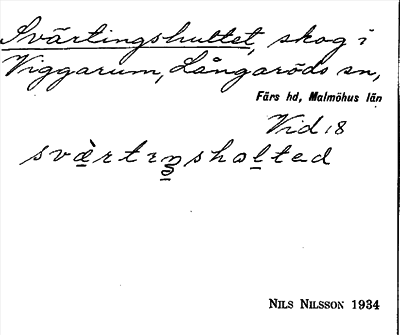 Svärtingshultet, skog i
Viggarum, Långaröds sn,
Färs hd, Malmöhus län
Vid: 8
NILS NILSSON 1934